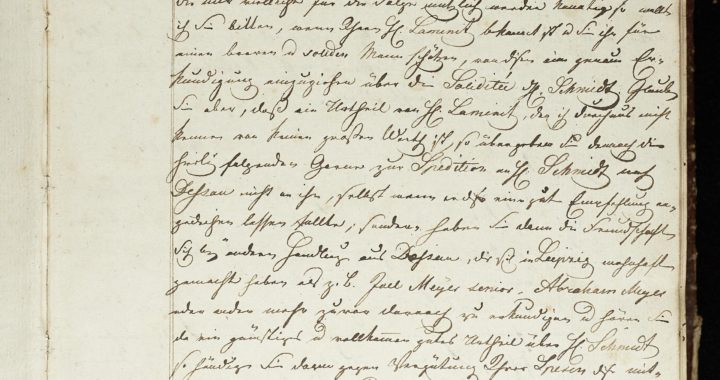 Sie mir vielleicht für die Folge nützlich werden könnte, so wollt
ich Sie bitten, wenn Ihnen H. Laminit bekannt ist u Sie ihn für
einen braven u soliden Mann schätzen, von diesem genaue Er-
kundigung einzuziehen über die Soliditée H. Schmidt. Glauben
Sie aber, daß ein Urtheil von H. Laminit, den ich durchaus nicht
kenne von keinem großen Werth ist, so übergeben Sie dennoch die
folgenden Garne zur Spedition an H. Schmidt nach
Dessau nicht an ihn, selbst wenn er diese eine gute Empfehlung an-
gedeihen lassen sollte; sondern haben Sie dann die Freundschaft
sich bey andern Handlungs aus Dessau, die sich in Leipzig wohnhaft
gemacht haben als z. B. Joel Meyer senior, Abraham Meyer
oder andere mehr zuvor darnach zu erkundigen u hören Sie
da ein günstiges u vollkommen gutes Urtheil über H. Schmidt
so händigen Sie dann gegen Vergütung Ihrer Spesen die mit-